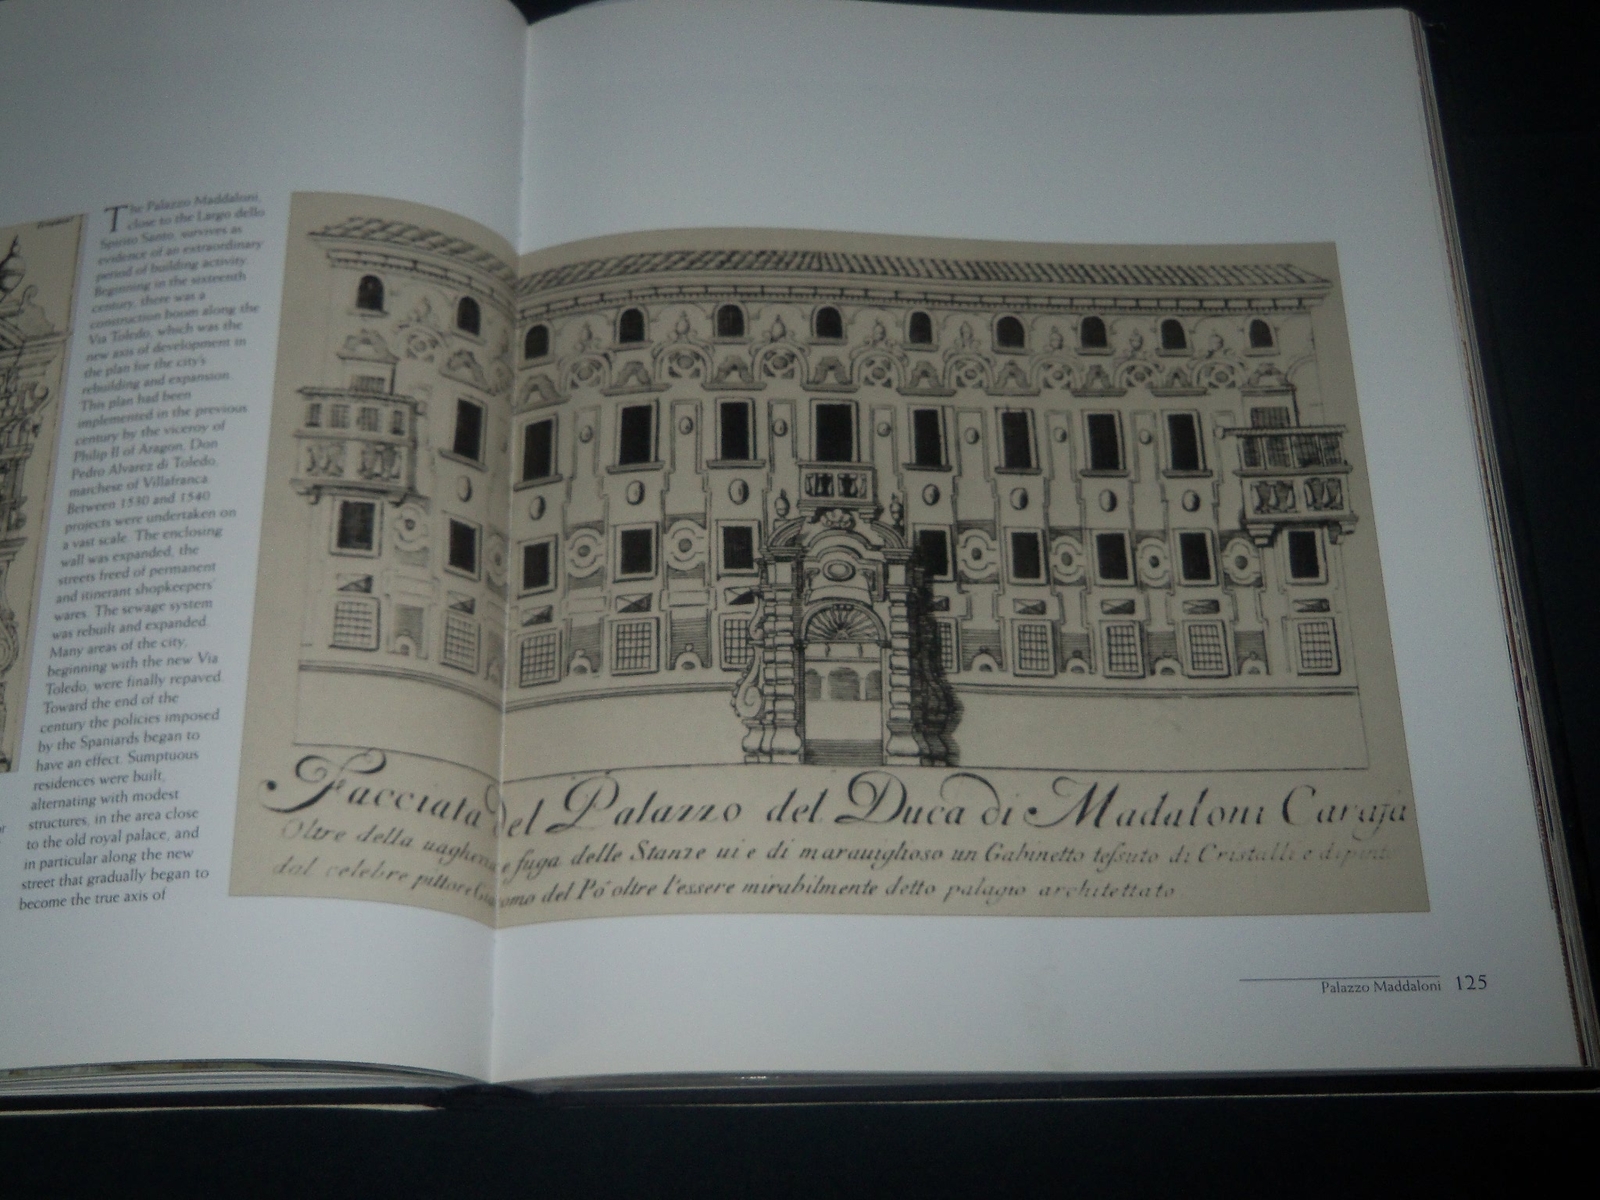 The Palazzo Maddaloni,
close to the Largo dello
Spirito Santo, survives as
evidence of an extraordinary
period of building activity.
Beginning in the sixteenth
century, there was a
construction boom along the
Via Toledo, which was the
new axis of development in
the plan for the city's
rebuilding and expansion.
This plan had been
implemented in the previous
century by the viceroy of
Philip II of Aragon, Don
Pedro Alvarez di Toledo,
marchese of Villafranca.
Between 1530 and 1540
projects were undertaken on
a vast scale. The enclosing
wall was expanded, the
streets freed of permanent
and itinerant shopkeepers'
wares. The sewage system
was rebuilt and expanded.
Many areas of the city,
beginning with the new Via
Toledo, were finally repaved.
Toward the end of the
century the policies imposed
by the Spaniards began to
have an effect. Sumptuous
residences were built,
alternating with modest
structures, in the area close
to the old royal palace, and
in particular along the new
street that gradually began to
become the true axis of
Facciata del Palazzo del Duca di Madaloni Carafa
Oltre della uaghezza e fuga delle Stanze ui e di marauiglioso un Gabinetto teſsuto di Cristalli e dipinto
dal celebre pittore Giacomo del Pó oltre l'essere mirabilmente detto palagio architettato
Palazzo Maddaloni 125